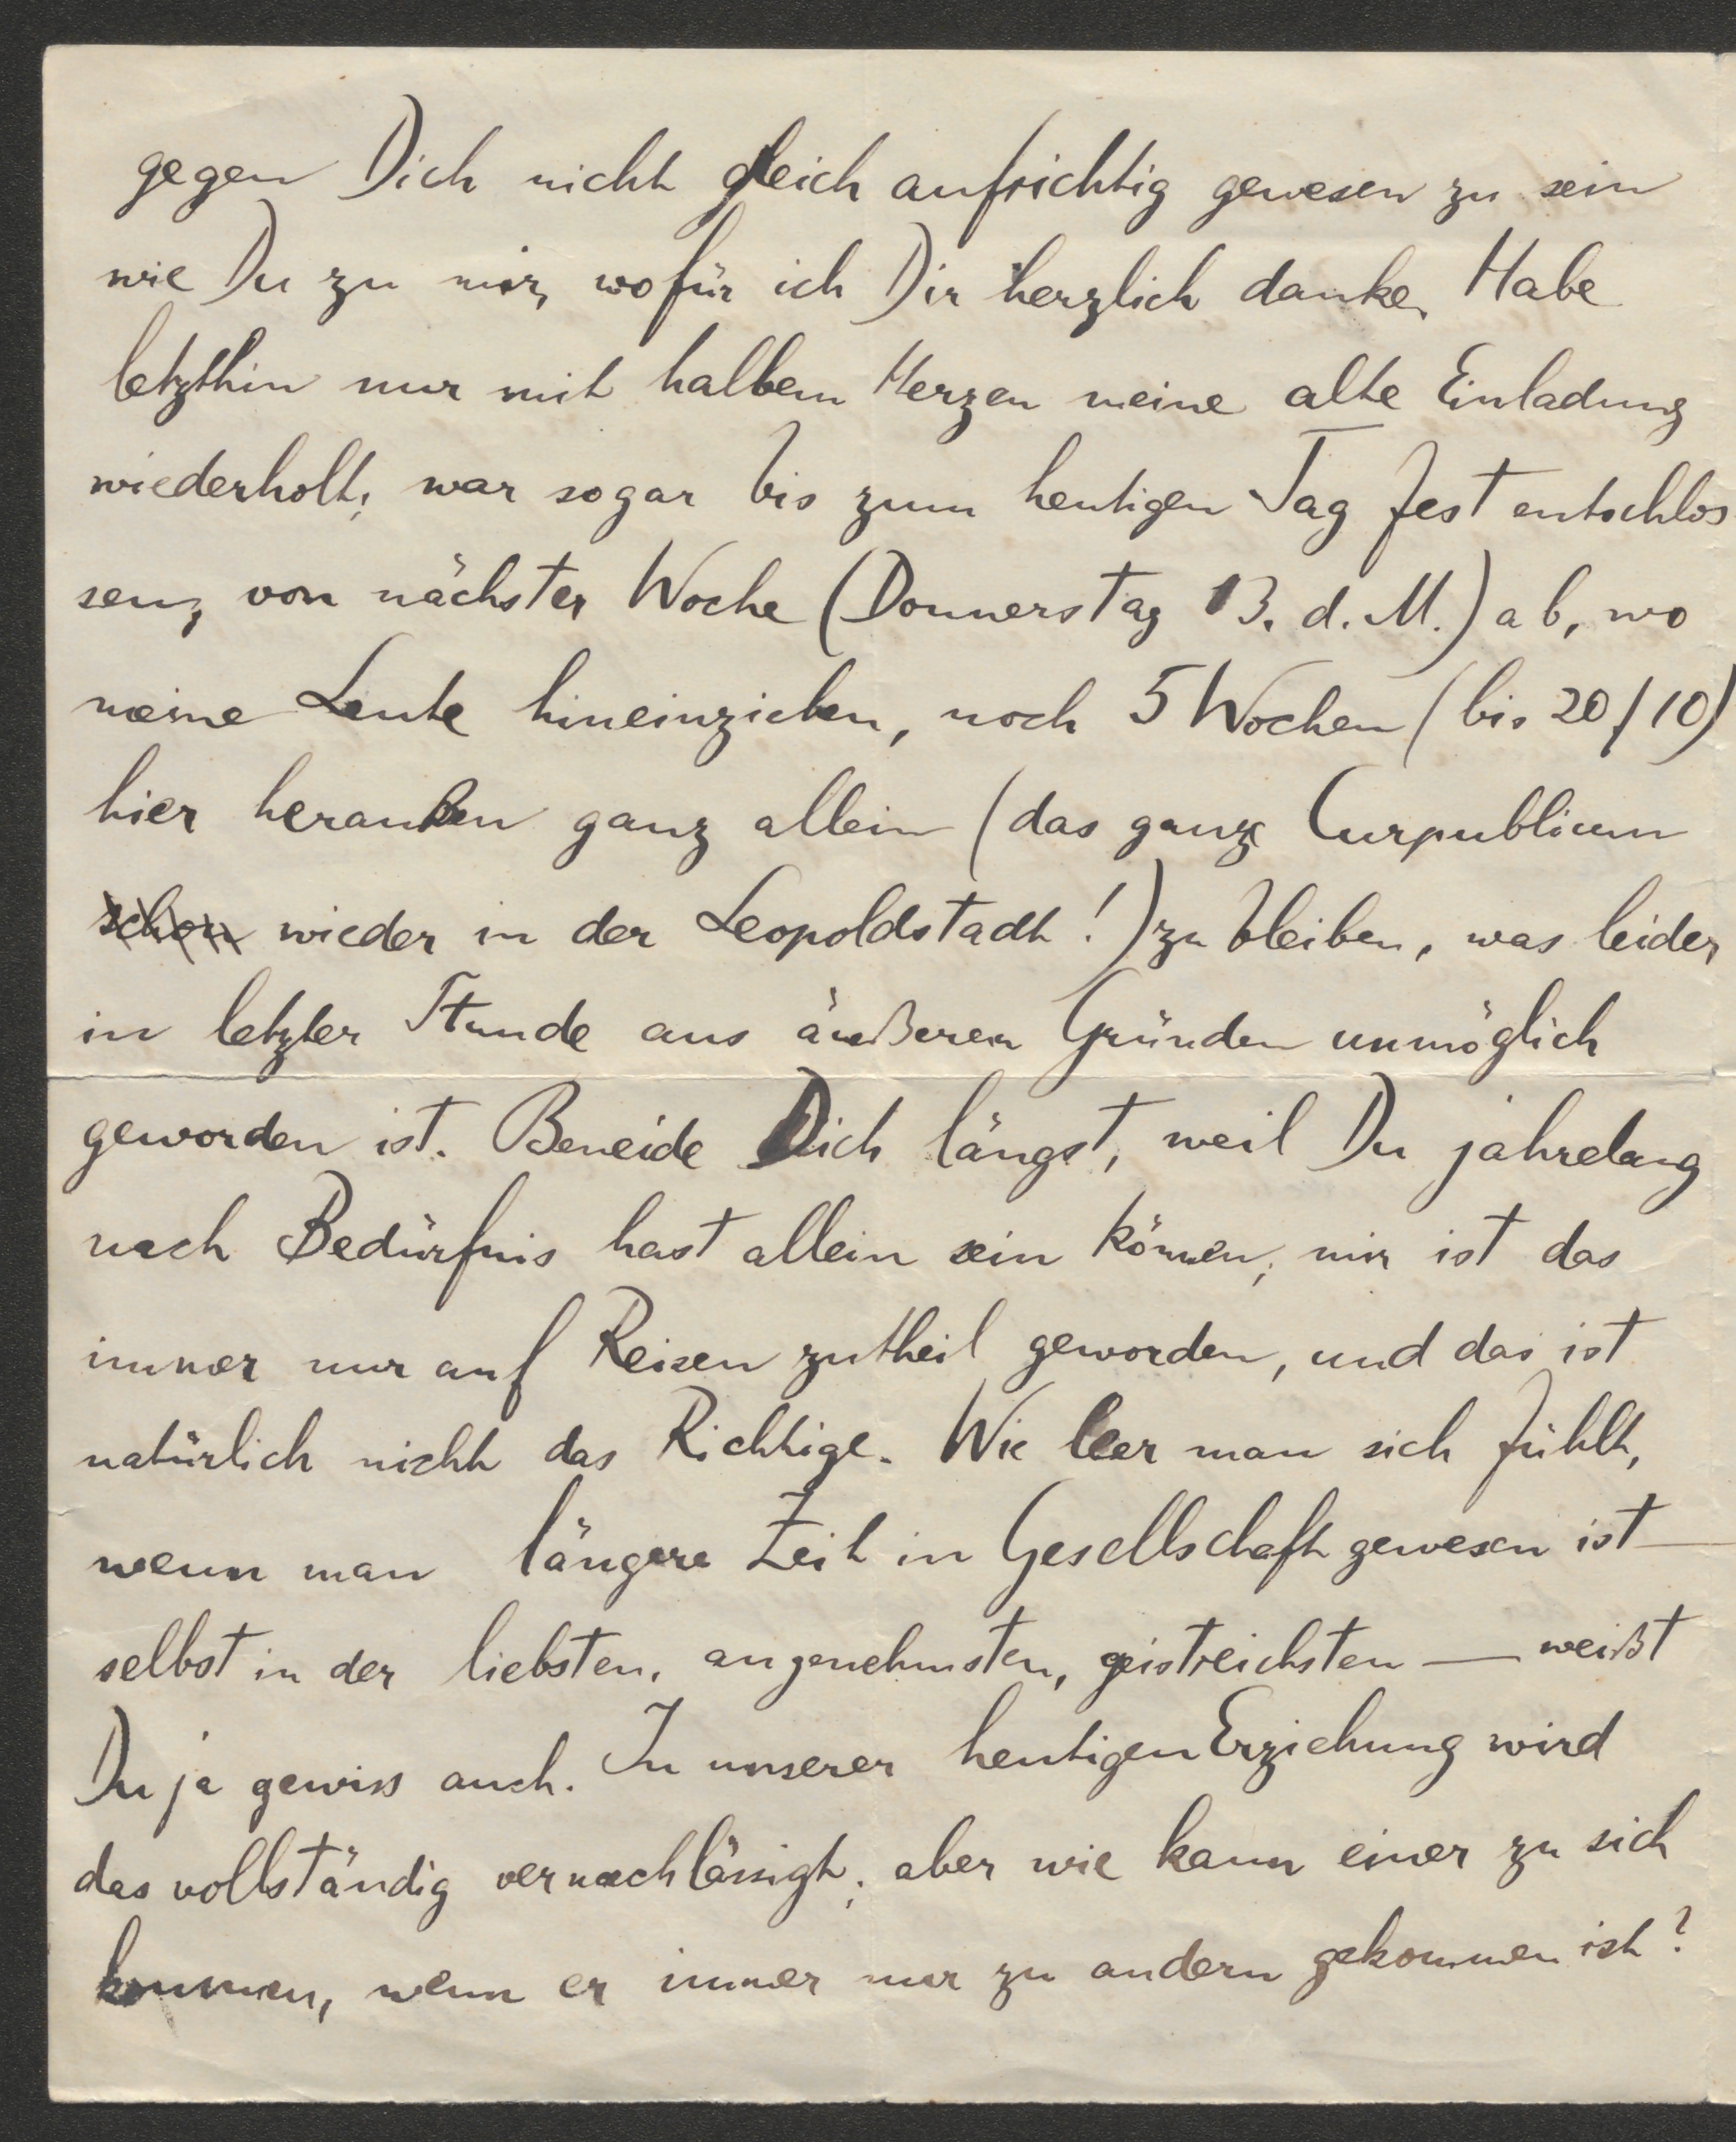 gegen Dich nicht gleich aufrichtig gewesen zu sein
wie Du zu mir, wofür ich Dir herzlich danke. Habe
letzthin nur mit halbem Herzen meine alte Einladung
wiederholt; war sogar bis zum heutigen Tag fest entschlos
sen, von nächster Woche (Donnerstag 13. d. M.) ab, wo
meine Leute hineinziehen, noch 5 Wochen (bis 20/10)
hier heraußen ganz allein (das ganze Curpublicum
schon wieder in der Leopoldstadt!) zu bleiben, was leider
in letzter Stunde aus äußeren Gründen unmöglich
geworden ist. Beneide Dich längst, weil Du jahrelang
nach Bedürfnis hast allein sein können; mir ist das
immer nur auf Reisen zutheil geworden, und das ist
natürlich nicht das Richtige. Wie leer man sich fühlt,
wenn man längere Zeit in Gesellschaft gewesen ist —
selbst in der liebsten, angenehmsten, geistreichsten — weißt
Du ja gewiss auch. In unserer heutigen Erziehung wird
das vollständig vernachlässigt; aber wie kann einer zu sich
kommen, wenn er immer nur zu andern gekommen ist?